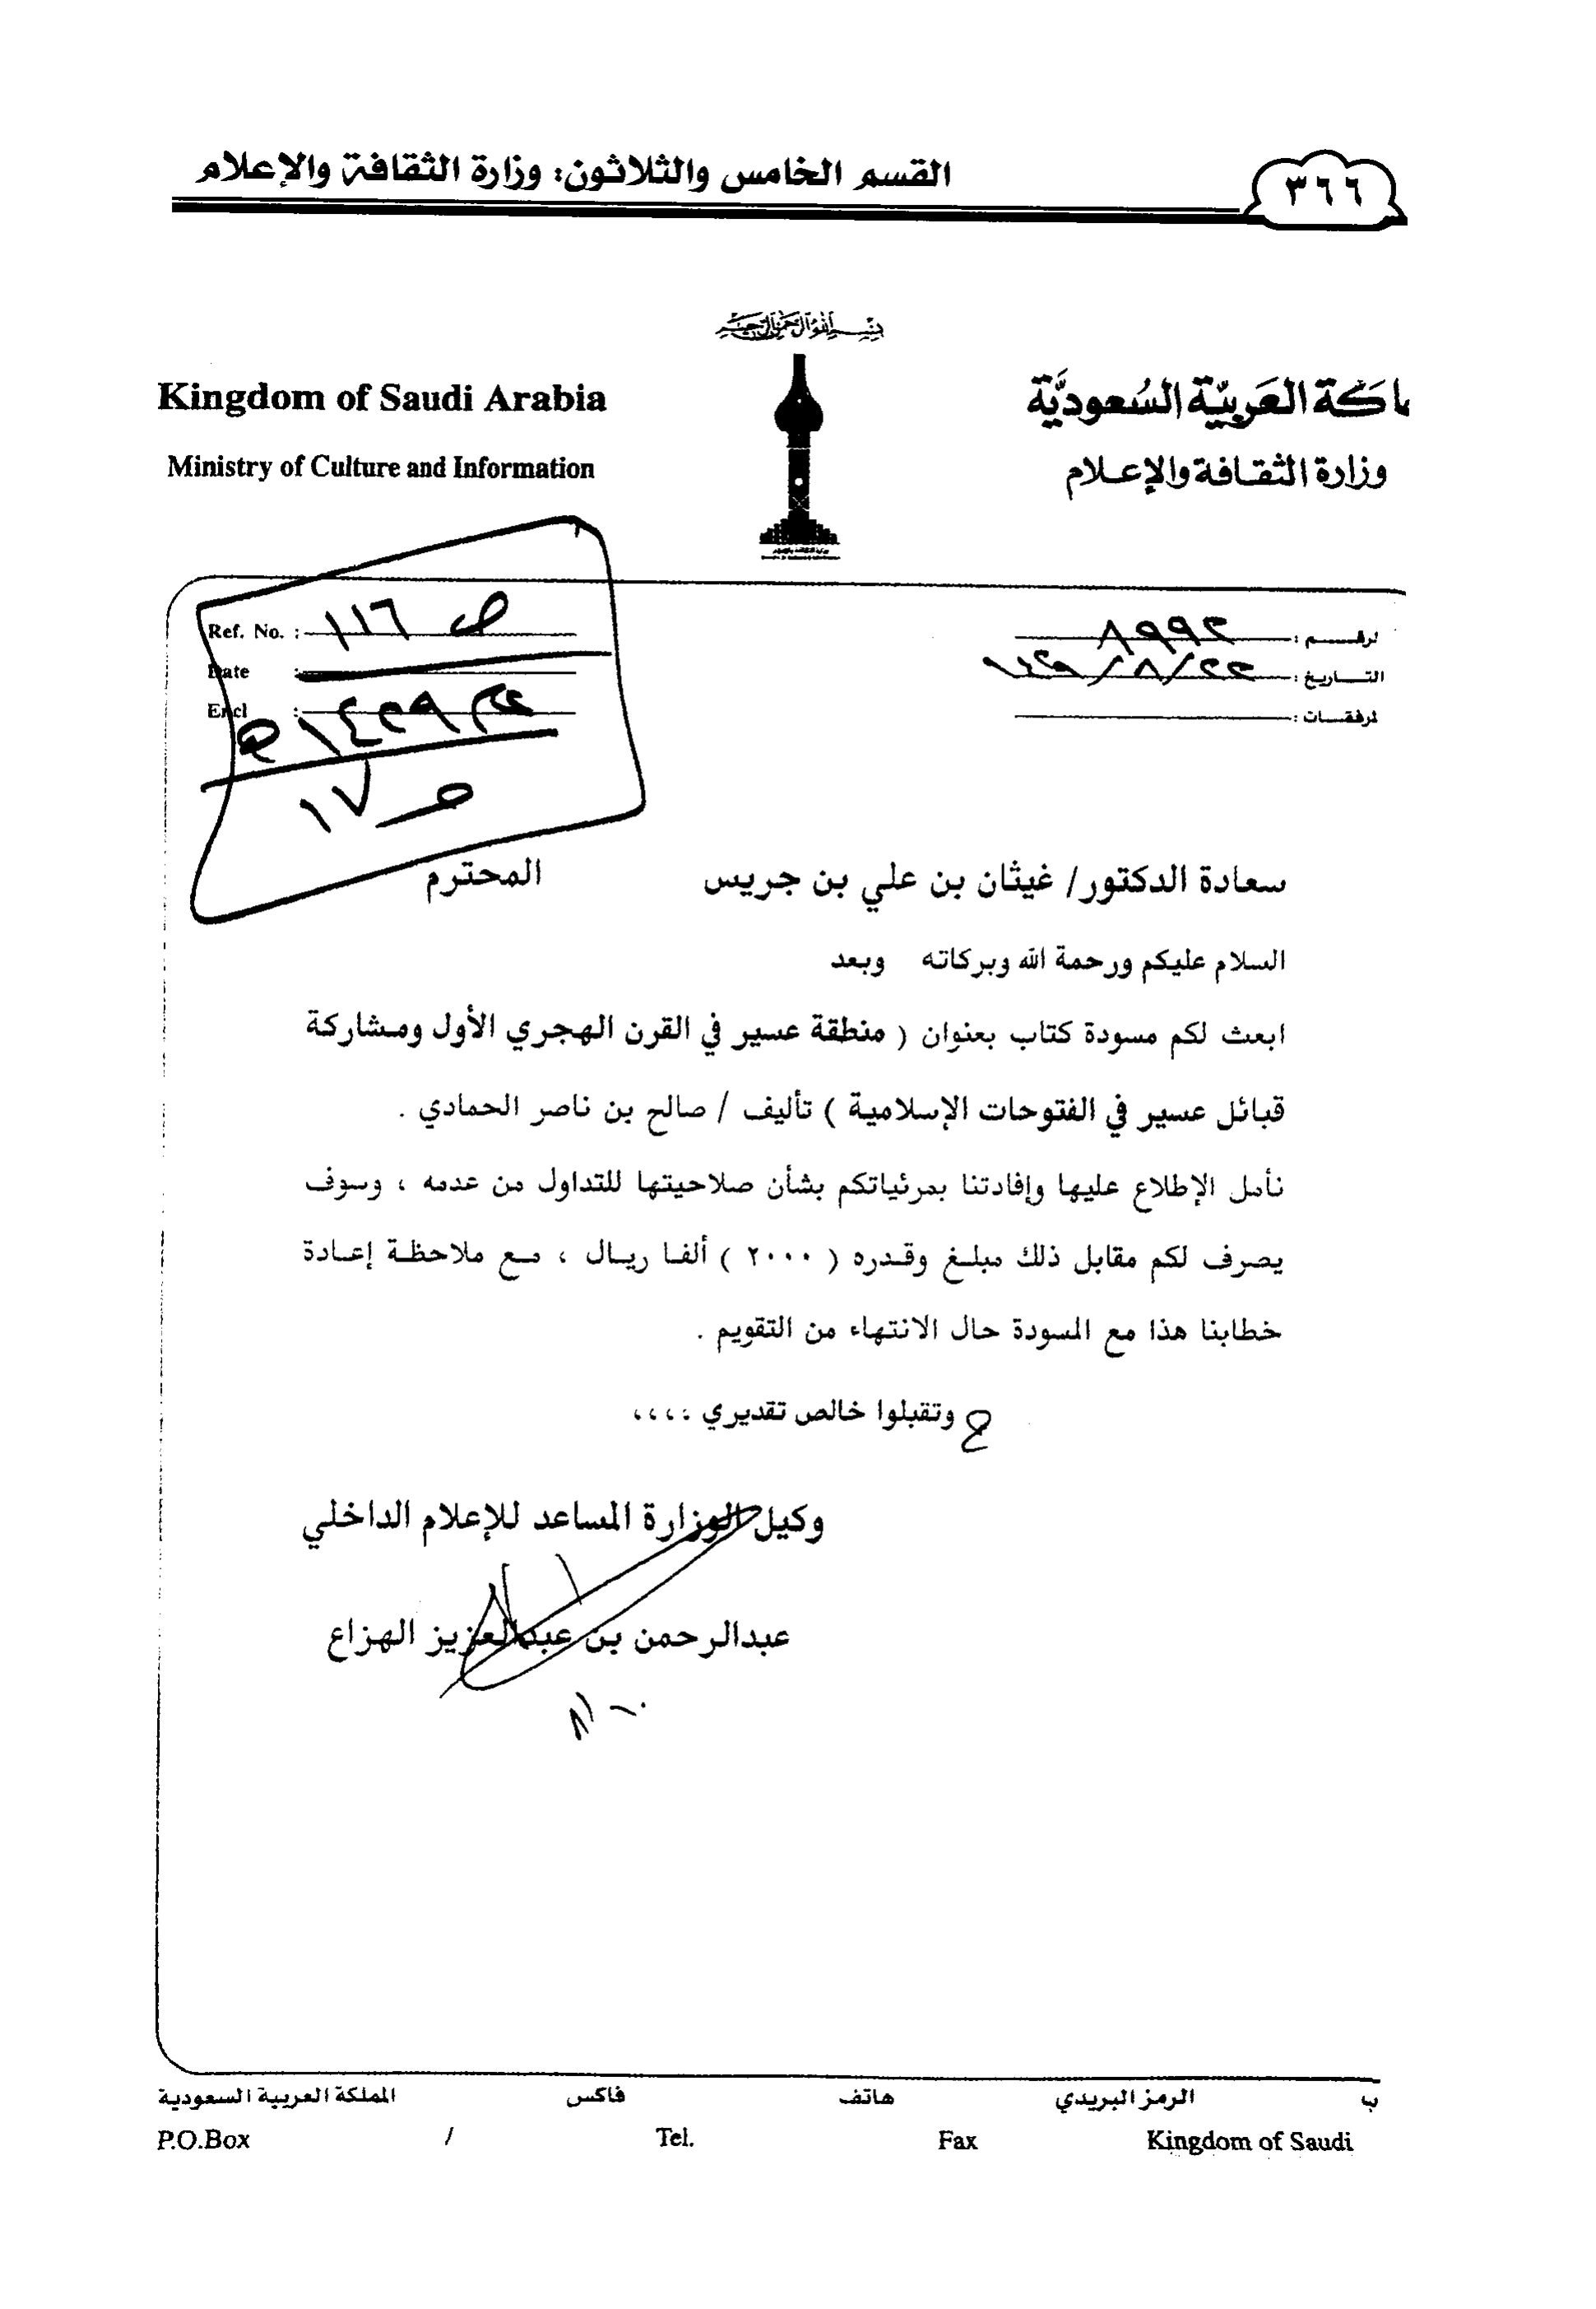 القسم الخامس والثلاثون: وزارة الثقافة والإعلام
٣٦٦
بسم الله الرحمن الرحيم
Kingdom of Saudi Arabia
اكة العربية السعودية
Ministry of Culture and Information
وزارة الثقافة والإعلام
Ref. No. : ص ١١٦
Date :
Encl :
١٤٢٩هـ
ص ١٧
لرقم : ٨٩٩٢
التاريخ : ٢٢/٨/١٤٢٩
لرفقات :
سعادة الدكتور/ غيثان بن علي بن جريس المحترم
السلام عليكم ورحمة الله وبركاته وبعد
ابعث لكم مسودة كتاب بعنوان ( منطقة عسير في القرن الهجري الأول ومشاركة
قبائل عسير في الفتوحات الإسلامية ) تأليف / صالح بن ناصر الحمادي .
نأمل الإطلاع عليها وإفادتنا بمرئياتكم بشأن صلاحيتها للتداول من عدمه ، وسوف
يصرف لكم مقابل ذلك مبلغ وقدره ( ٢٠٠٠ ) ألفا ريال ، مع ملاحظة إعادة
خطابنا هذا مع المسودة حال الانتهاء من التقويم .
وتقبلوا خالص تقديري ،،،،
وكيل الوزارة المساعد للإعلام الداخلي
عبدالرحمن بن عبدالعزيز الهزاع
ب الرمز البريدي هاتف فاكس المملكة العربية السعودية
P.O.Box / Tel. Fax Kingdom of Saudi